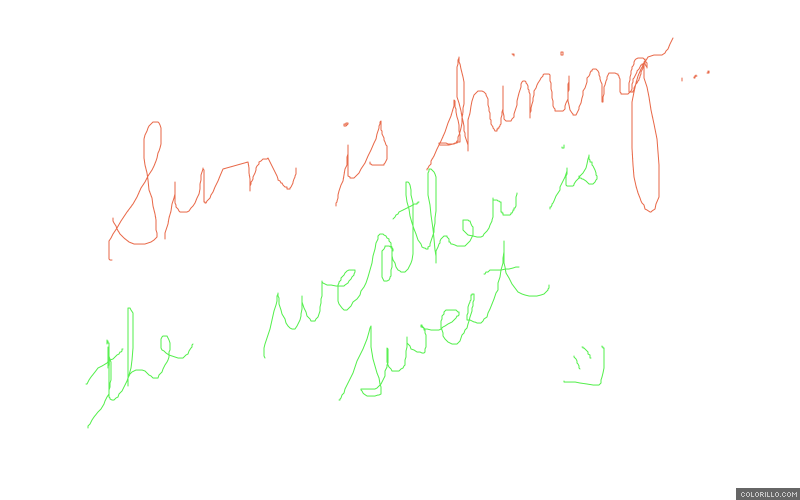 Sun is shining...
the weather is
sweet
COLORILLO.COM